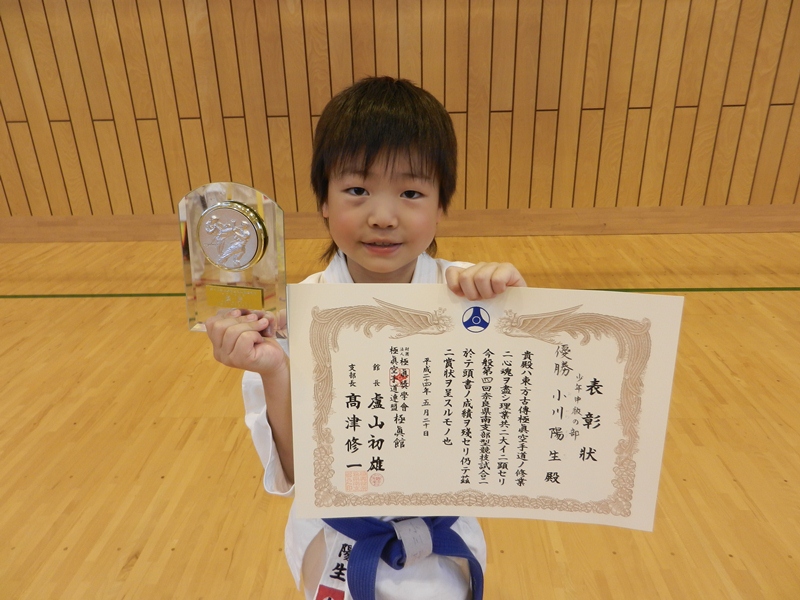 表彰状
少年中級の部
優勝 小川陽生 殿
貴殿ハ東方古傳極眞空手道ノ修業
ニ心魂ヲ盡シ理業共ニ大イニ顕セリ
今般第四回奈良県南支部型競技試合ニ
於テ頭書ノ成績ヲ殘セリ仍テ茲
ニ賞状ヲ呈スルモノ也
平成二十四年五月二十日
財團法人 極眞奨學會 極眞館
極眞空手道連盟
館長 盧山初雄
支部長 髙津修一
陽生